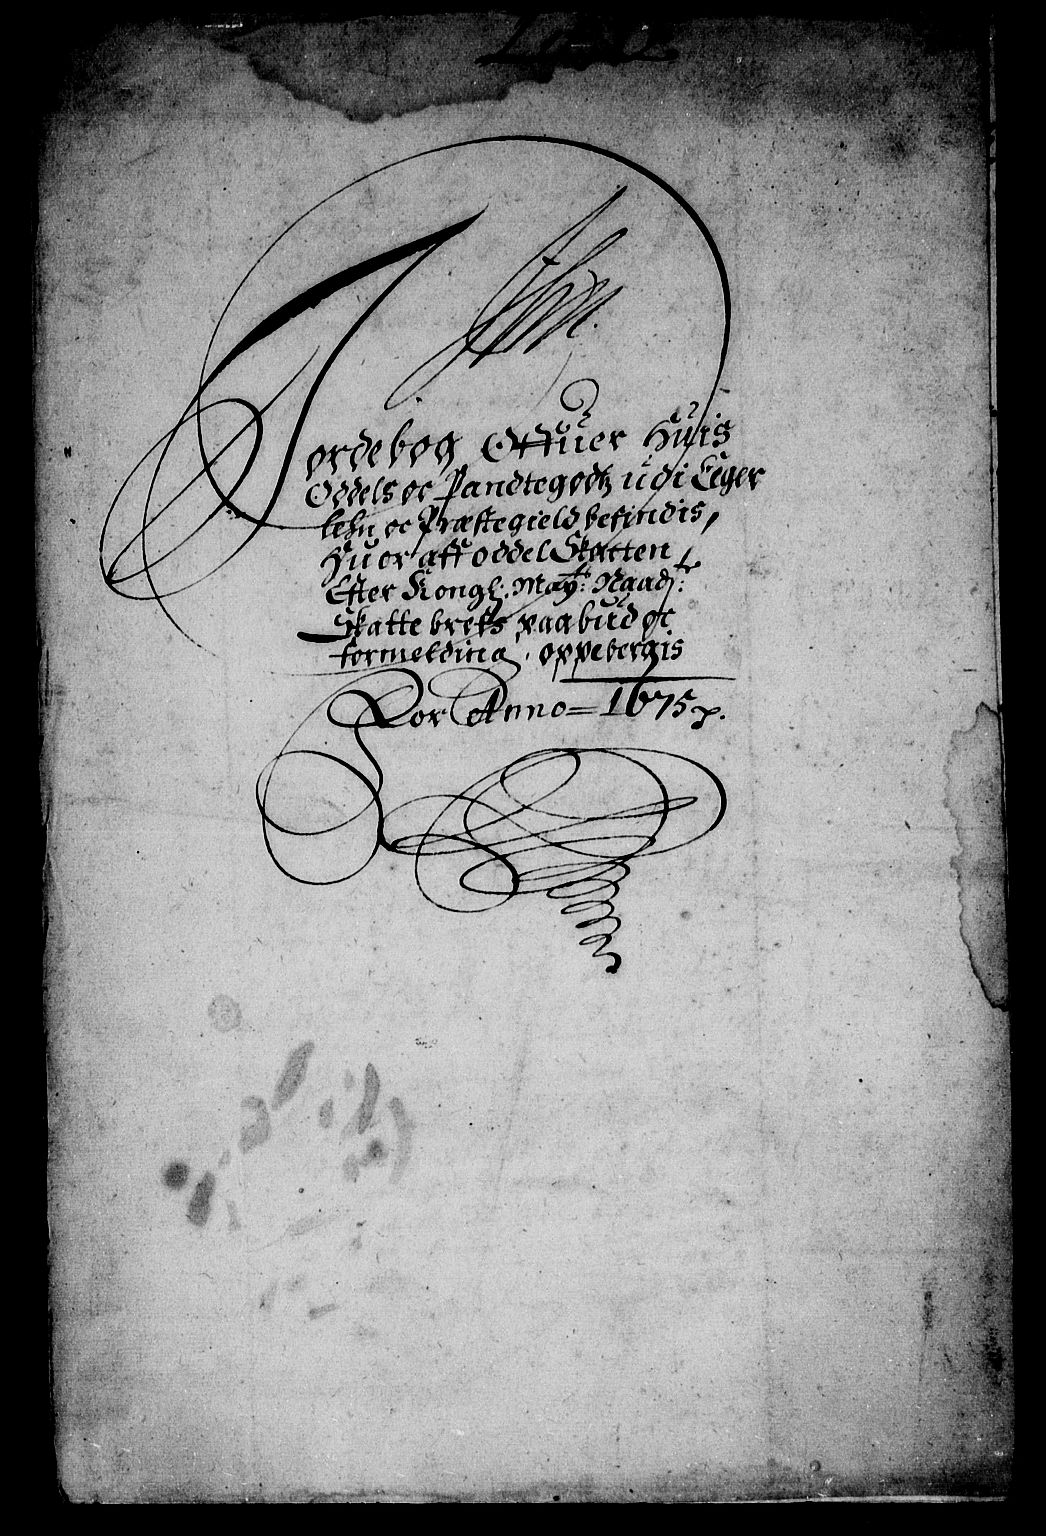 Jordebog Offuer Huis
Oddels oc Pandtegodtz udi Eger
Lehn oc Præstegield befindis,
Huor aff oddel Skatten
Efter Kongl: Mayts: Naadst:
Skatte brefs paabud oc
formelding, oppebergis
For Anno = 1675